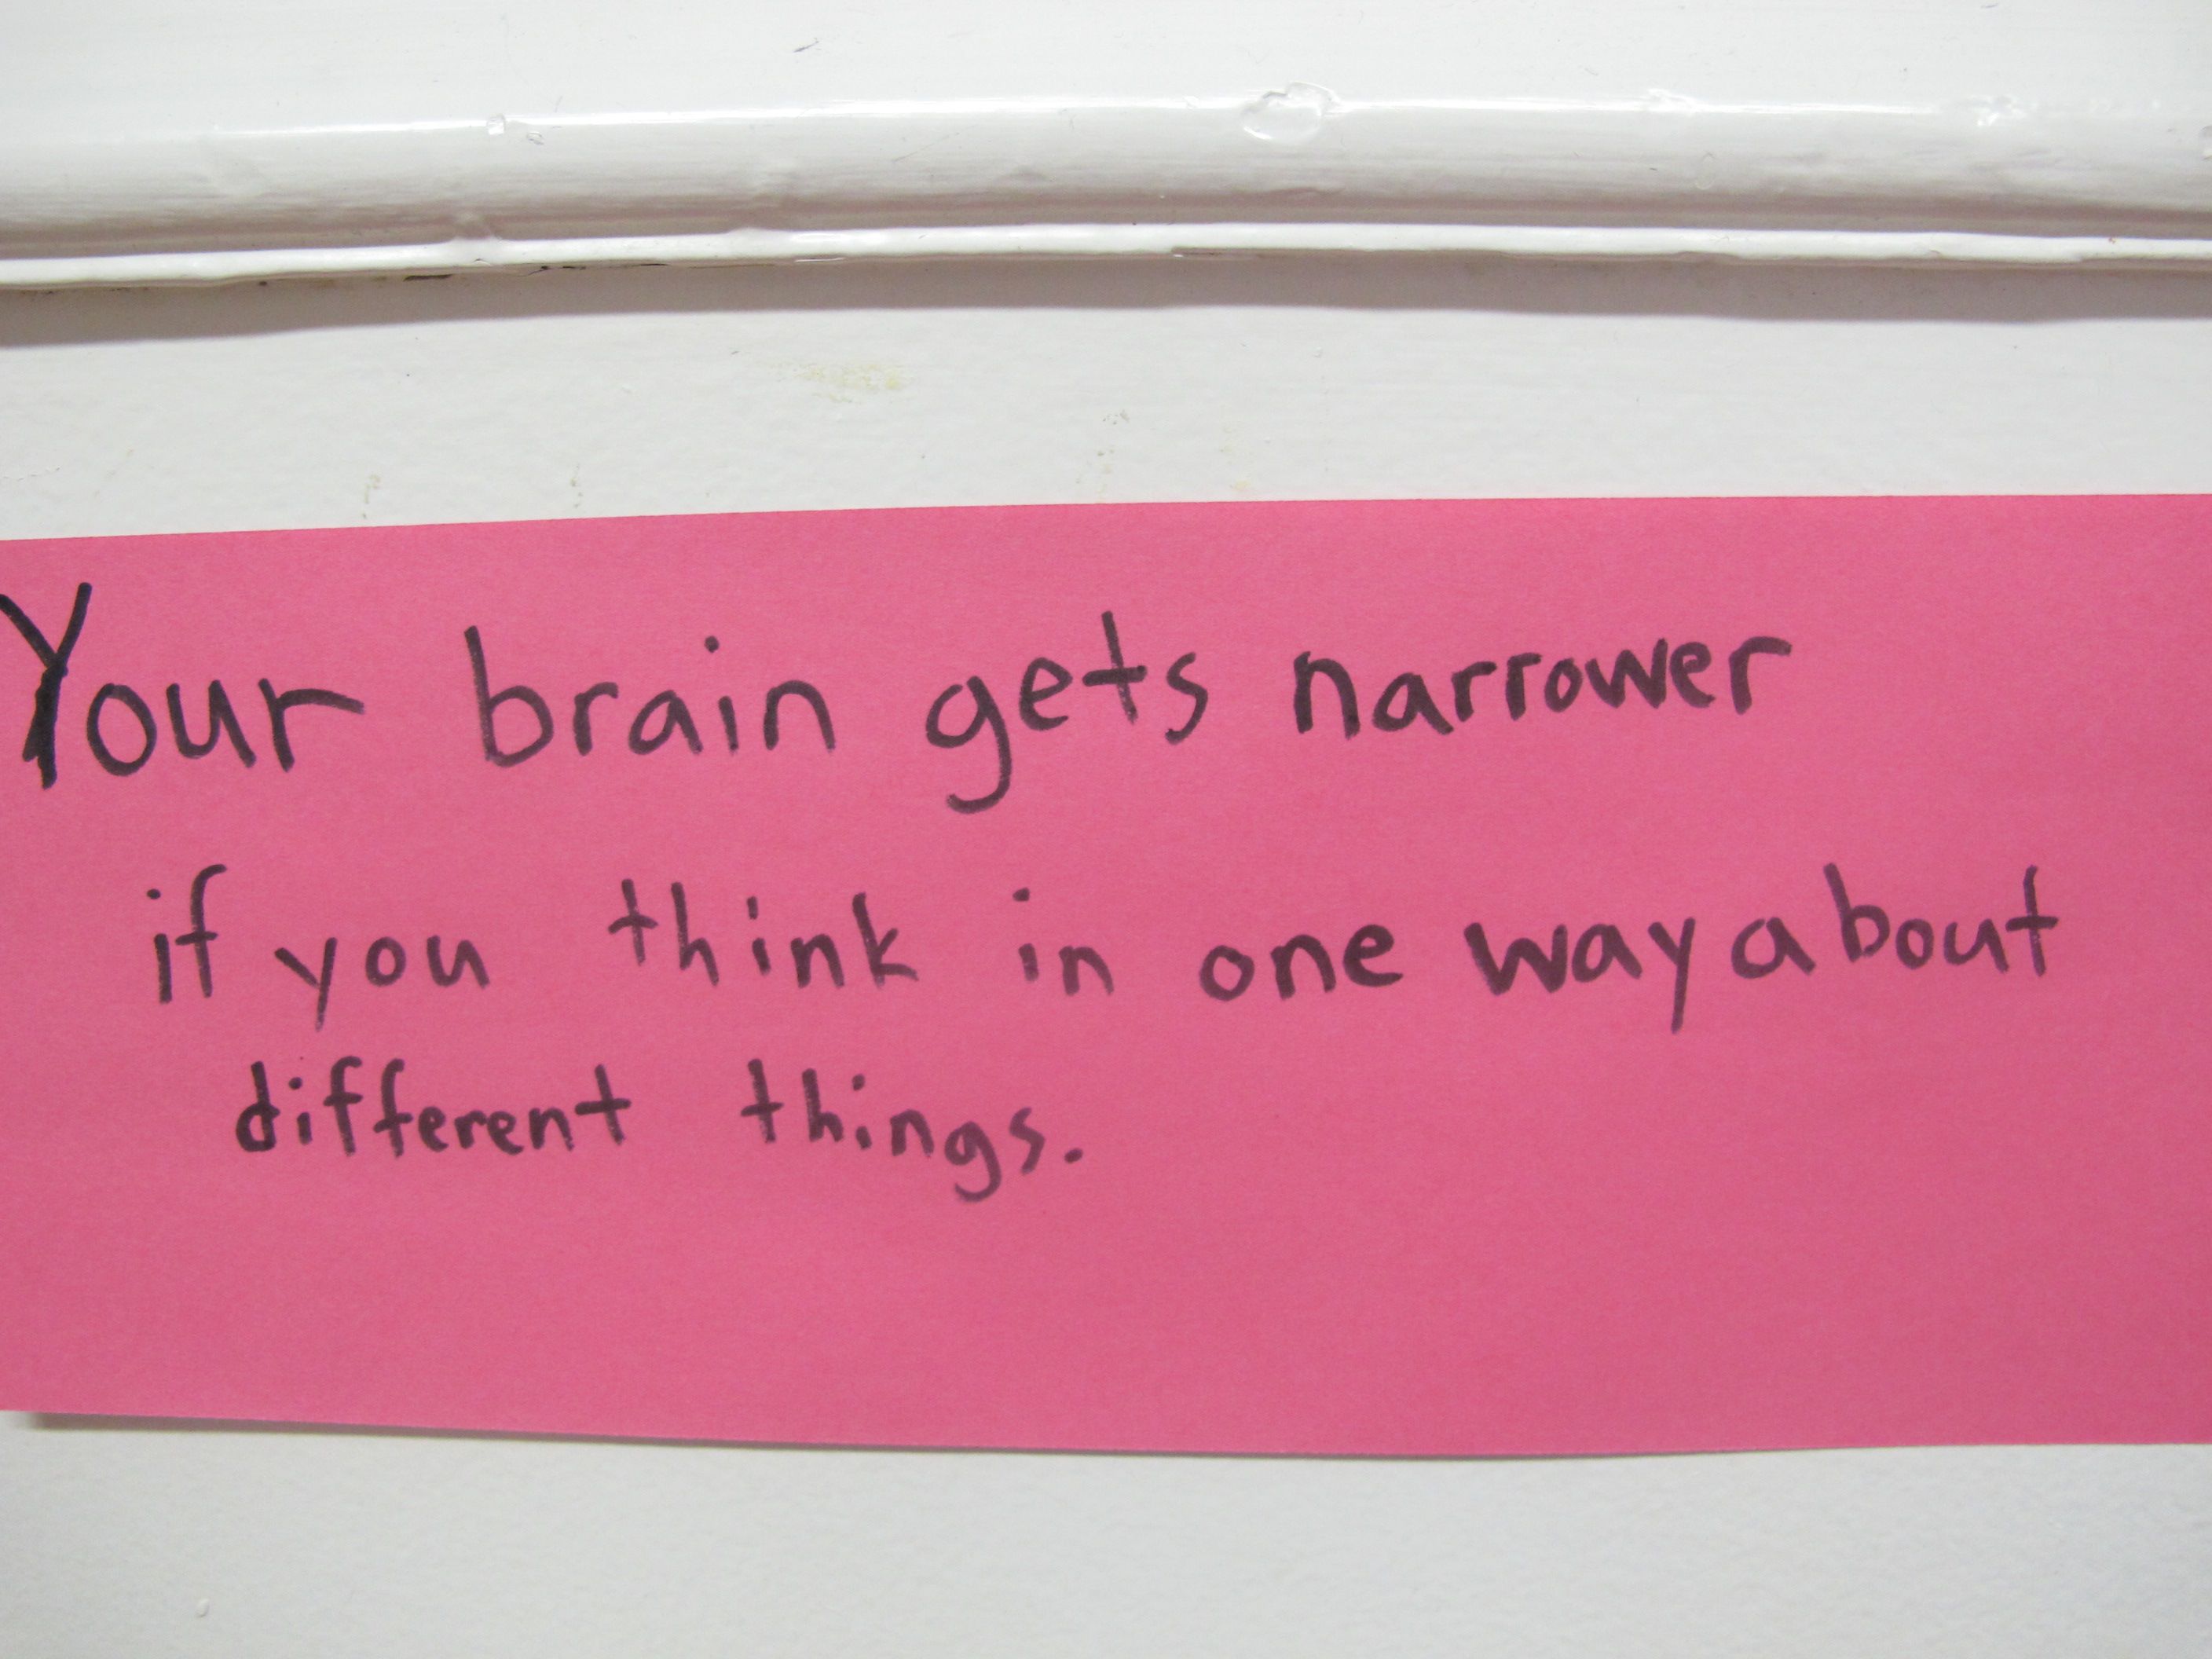 Your brain gets narrower
if you think in one way about
different things.